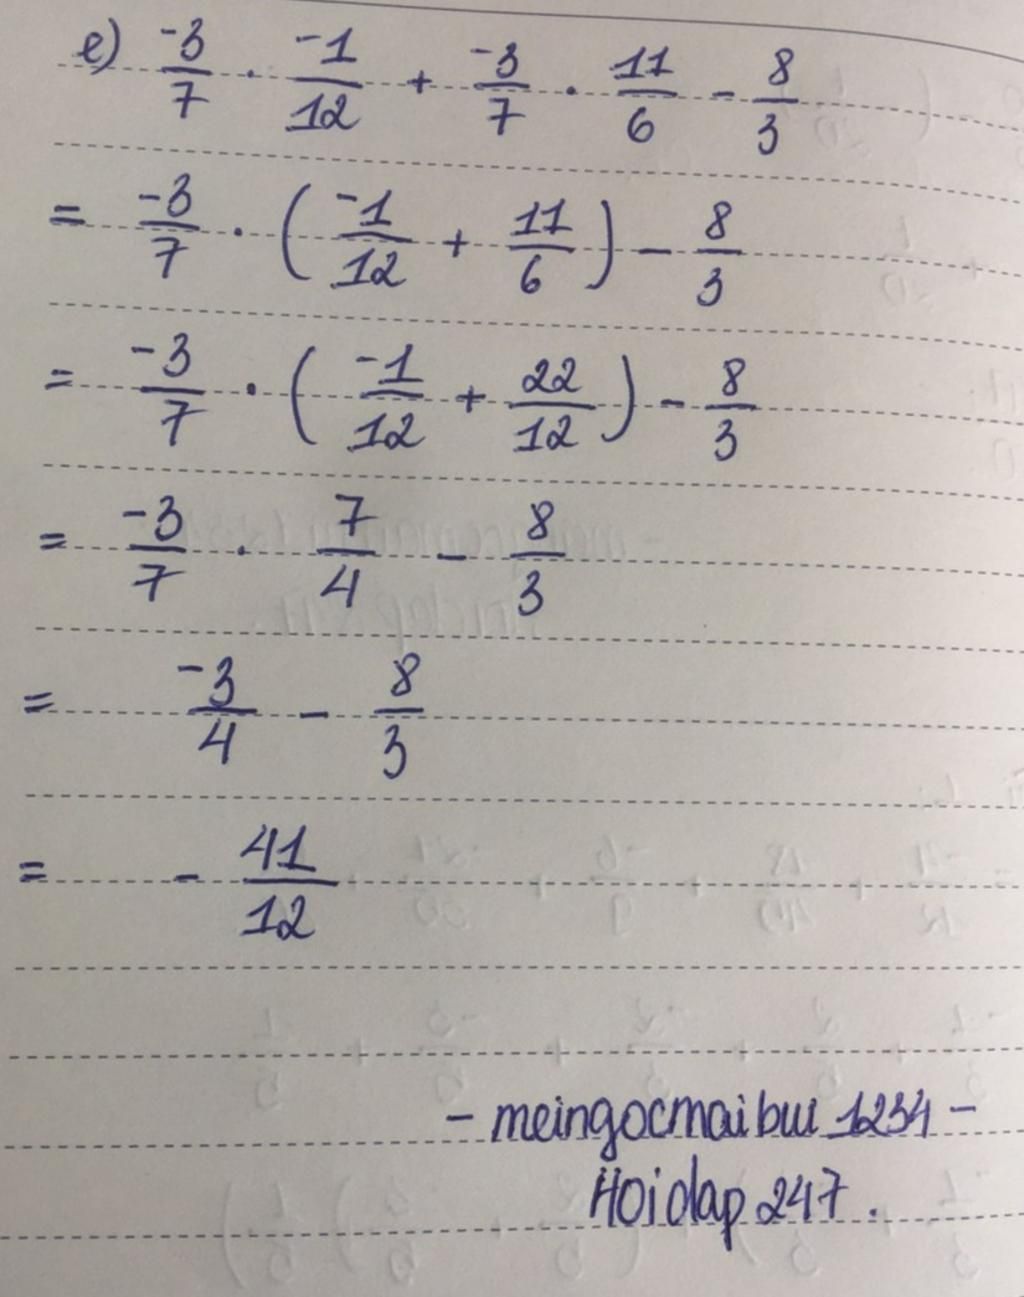 e) -3/7 . -1/12 + -3/7 . 11/6 - 8/3
= -3/7 . ( -1/12 + 11/6 ) - 8/3
= -3/7 . ( -1/12 + 22/12 ) - 8/3
= -3/7 . 7/4 - 8/3
= -3/4 - 8/3
= - 41/12
- meingocmaibui 1234 -
Hoidap 247 .